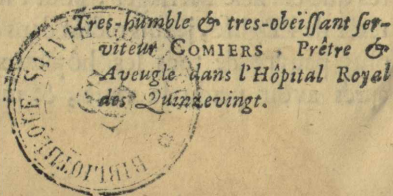 Tres-humble & tres-obeïſſant ſer-
viteur COMIERS, Prêtre &
Aveugle dans l'Hôpital Royal
des Quinzevingt.
BIBLIOTHEQUE SAINTE